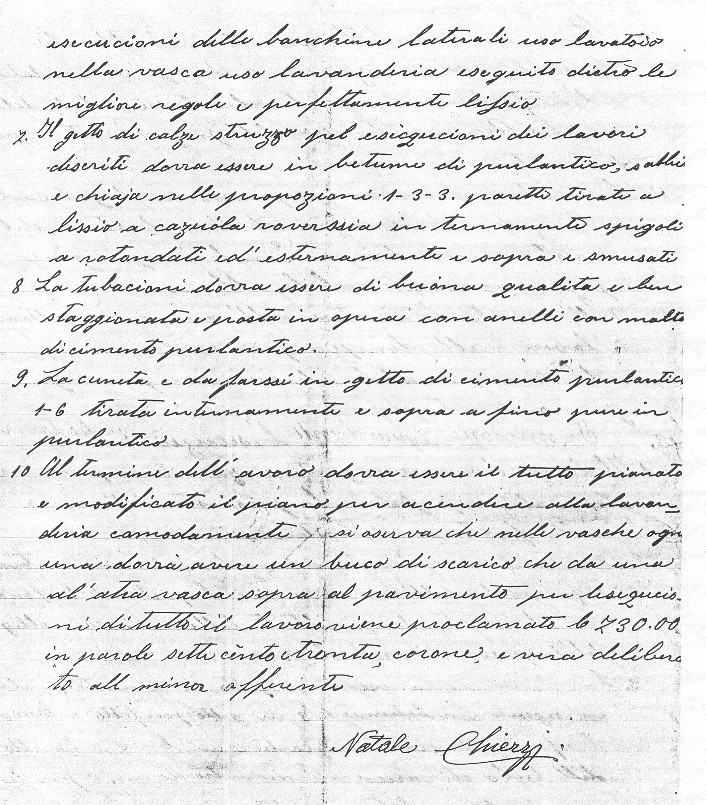 esecucioni delle banchine laterali uso lavatoio
nella vasca uso lavanderia eseguito dietro le
migliore regole e perfettamente lissio
7. Il getto di calze struzzo pel esicqucioni dei lavori
descriti dovra essere in betume di purlantico, sabbi
e chiaja nelle propozioni 1-3-3. parette tirate a
lissio a cazuola roverssia in ternamente spigoli
a rotondati ed' esternamente e sopra e smusati
8 La tubacioni dovra essere di buona qualita e ben
staggionata e posta in opera con anelli con malto
di cimento purlantico.
9. La cuneta e da farssi in getto di cimento purlantic
1-6 tirata internamente e sopra a fino pure in
purlantico
10 Al termine dell' avoro dovra essere il tutto pianato
e modificato il piano per acendere alla lavan-
deria comodamente si oserva che nelle vasche ogn
una dovrà avere un buco di scarico che da una
al' atra vasca sopra al pavimento per l'esequcio.
ni di tutto il lavoro viene proclamato 730.00
in parole sette cento e tronta, corone, e vera delibera
to all minor offerente
Natale Chierzi